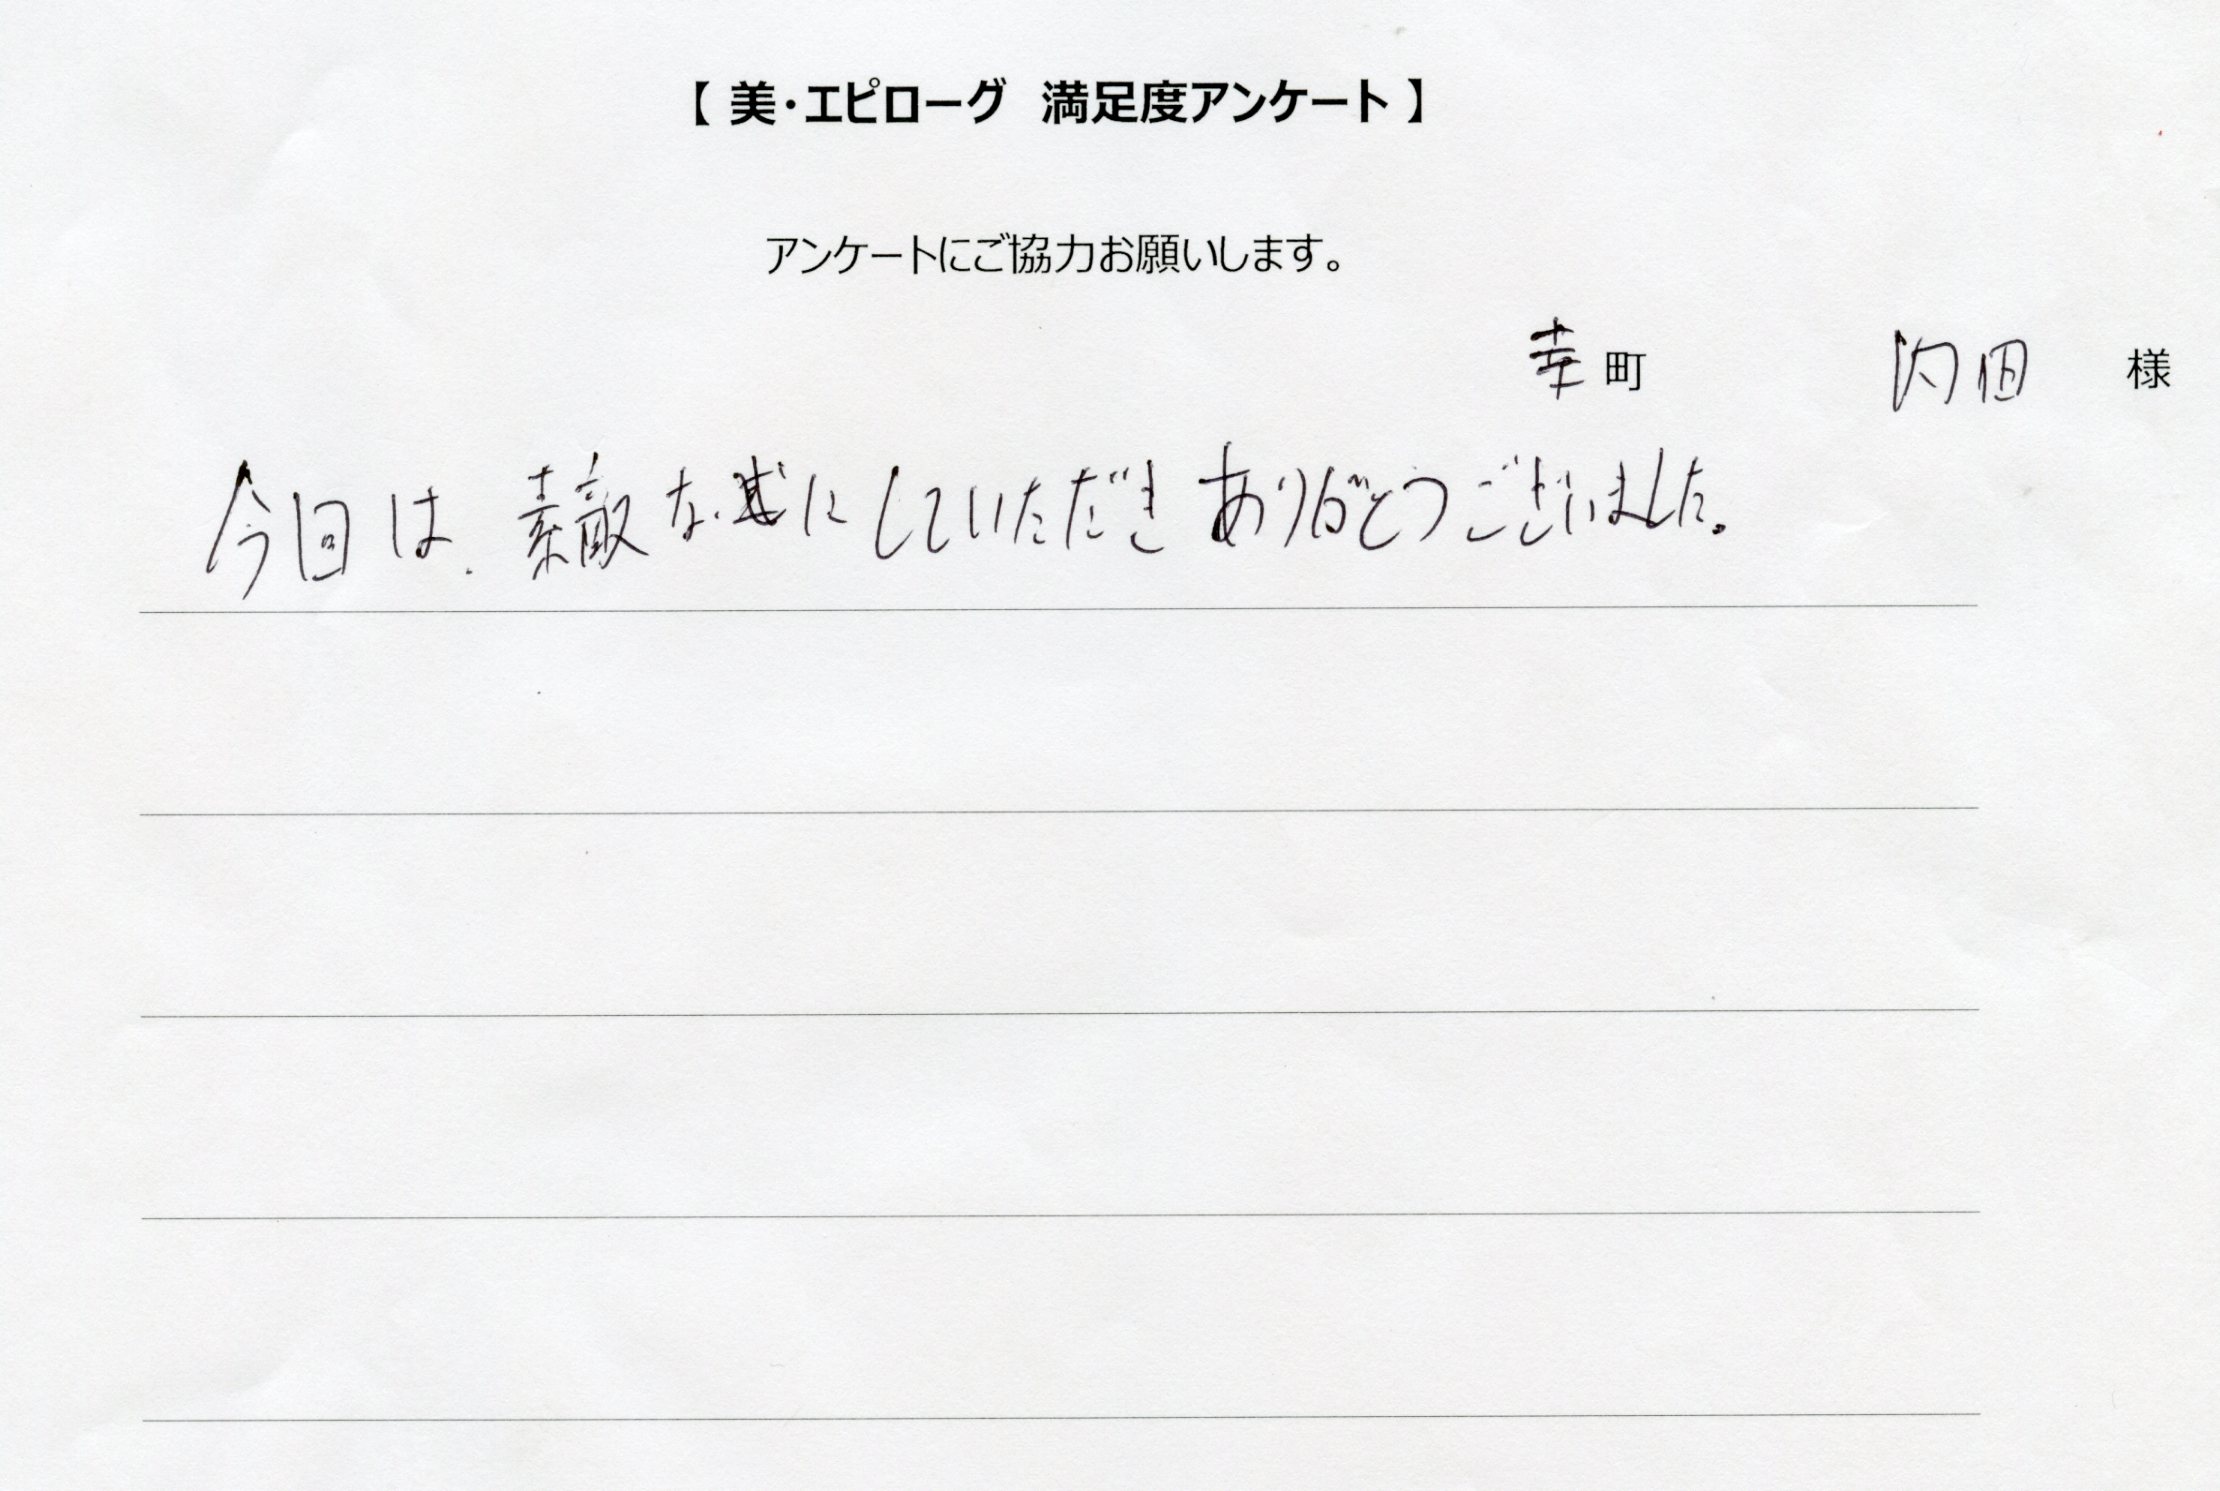 【 美・エピローグ 満足度アンケート 】
アンケートにご協力お願いします。
幸町 内田 様
今回は、素敵な式にしていただきありがとうございました。